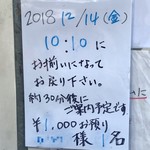 2018 12/14(金)
10:10に
お揃いになって
お戻り下さい。
約30分後に
ご案内予定です
¥1,000お預り
様 1名